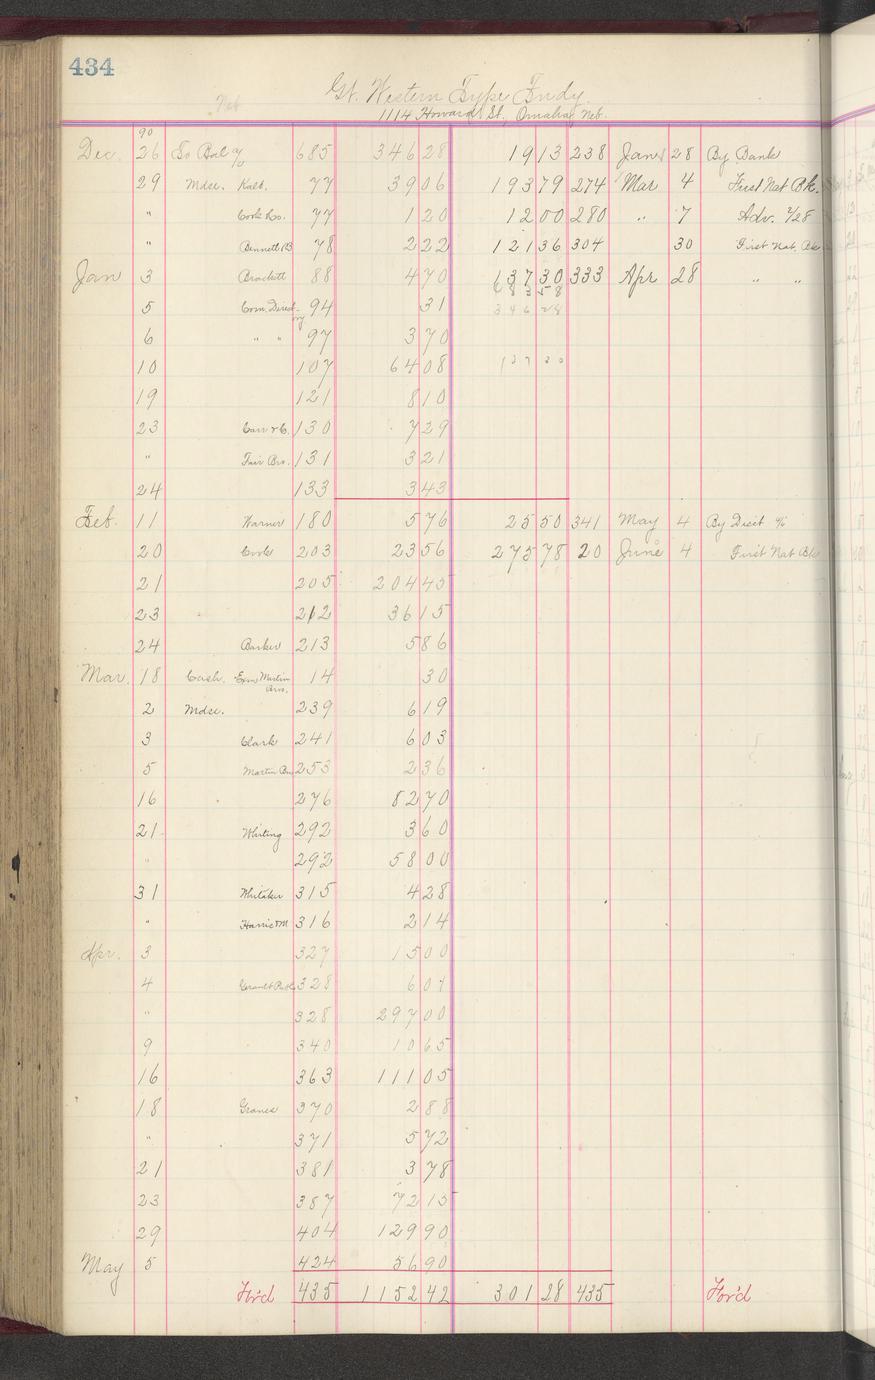 434
Gt. Western Type Fndy.
Net
1114 Howard St., Omaha, Neb.
90
Dec. 26 To Bal 685 346 28 19 13 238 Jany 28 By Bank
29 Mdse. Kalb. 77 39 06 193 79 274 Mar 4 First Nat Bk.
" Cook Ro. 77 1 20 12 00 280 " 7 Adv. 2/28
" Bennett 78 2 22 121 36 304 30 First Nat. Bk
Jan 3 Brackett 88 4 70 637 30 333 Apr 28 " "
683 58
5 Com. Direct-ory 94 31 346 28
6 " " 97 3 70
10 107 64 08 137 30
19 121 8 10
23 Carr & C. 130 7 29
" Fair Bro. 131 3 21
24 133 3 43
Feb. 11 Warner 180 5 76 25 50 341 May 4 By Disct %
20 Cook 203 23 56 275 78 20 June 4 First Nat Bk
21 205 204 45
23 212 36 15
24 Barker 213 5 86
Mar. 18 Cash. Exp Martin Bros. 14 30
2 Mdse. 239 6 19
3 Clark 241 6 03
5 Martin Bro 253 2 36
16 276 82 70
21 Whiting 292 3 60
" 292 58 00
31 Whitaker 315 4 28
" Harris & M 316 2 14
Apr. 3 327 15 00
4 328 6 01
" 328 297 00
9 340 10 65
16 363 111 05
18 Graves 370 2 88
" 371 5 72
21 381 3 78
23 387 72 15
29 404 129 90
May 5 424 56 90
For'd 435 1152 42 301 28 435 For'd